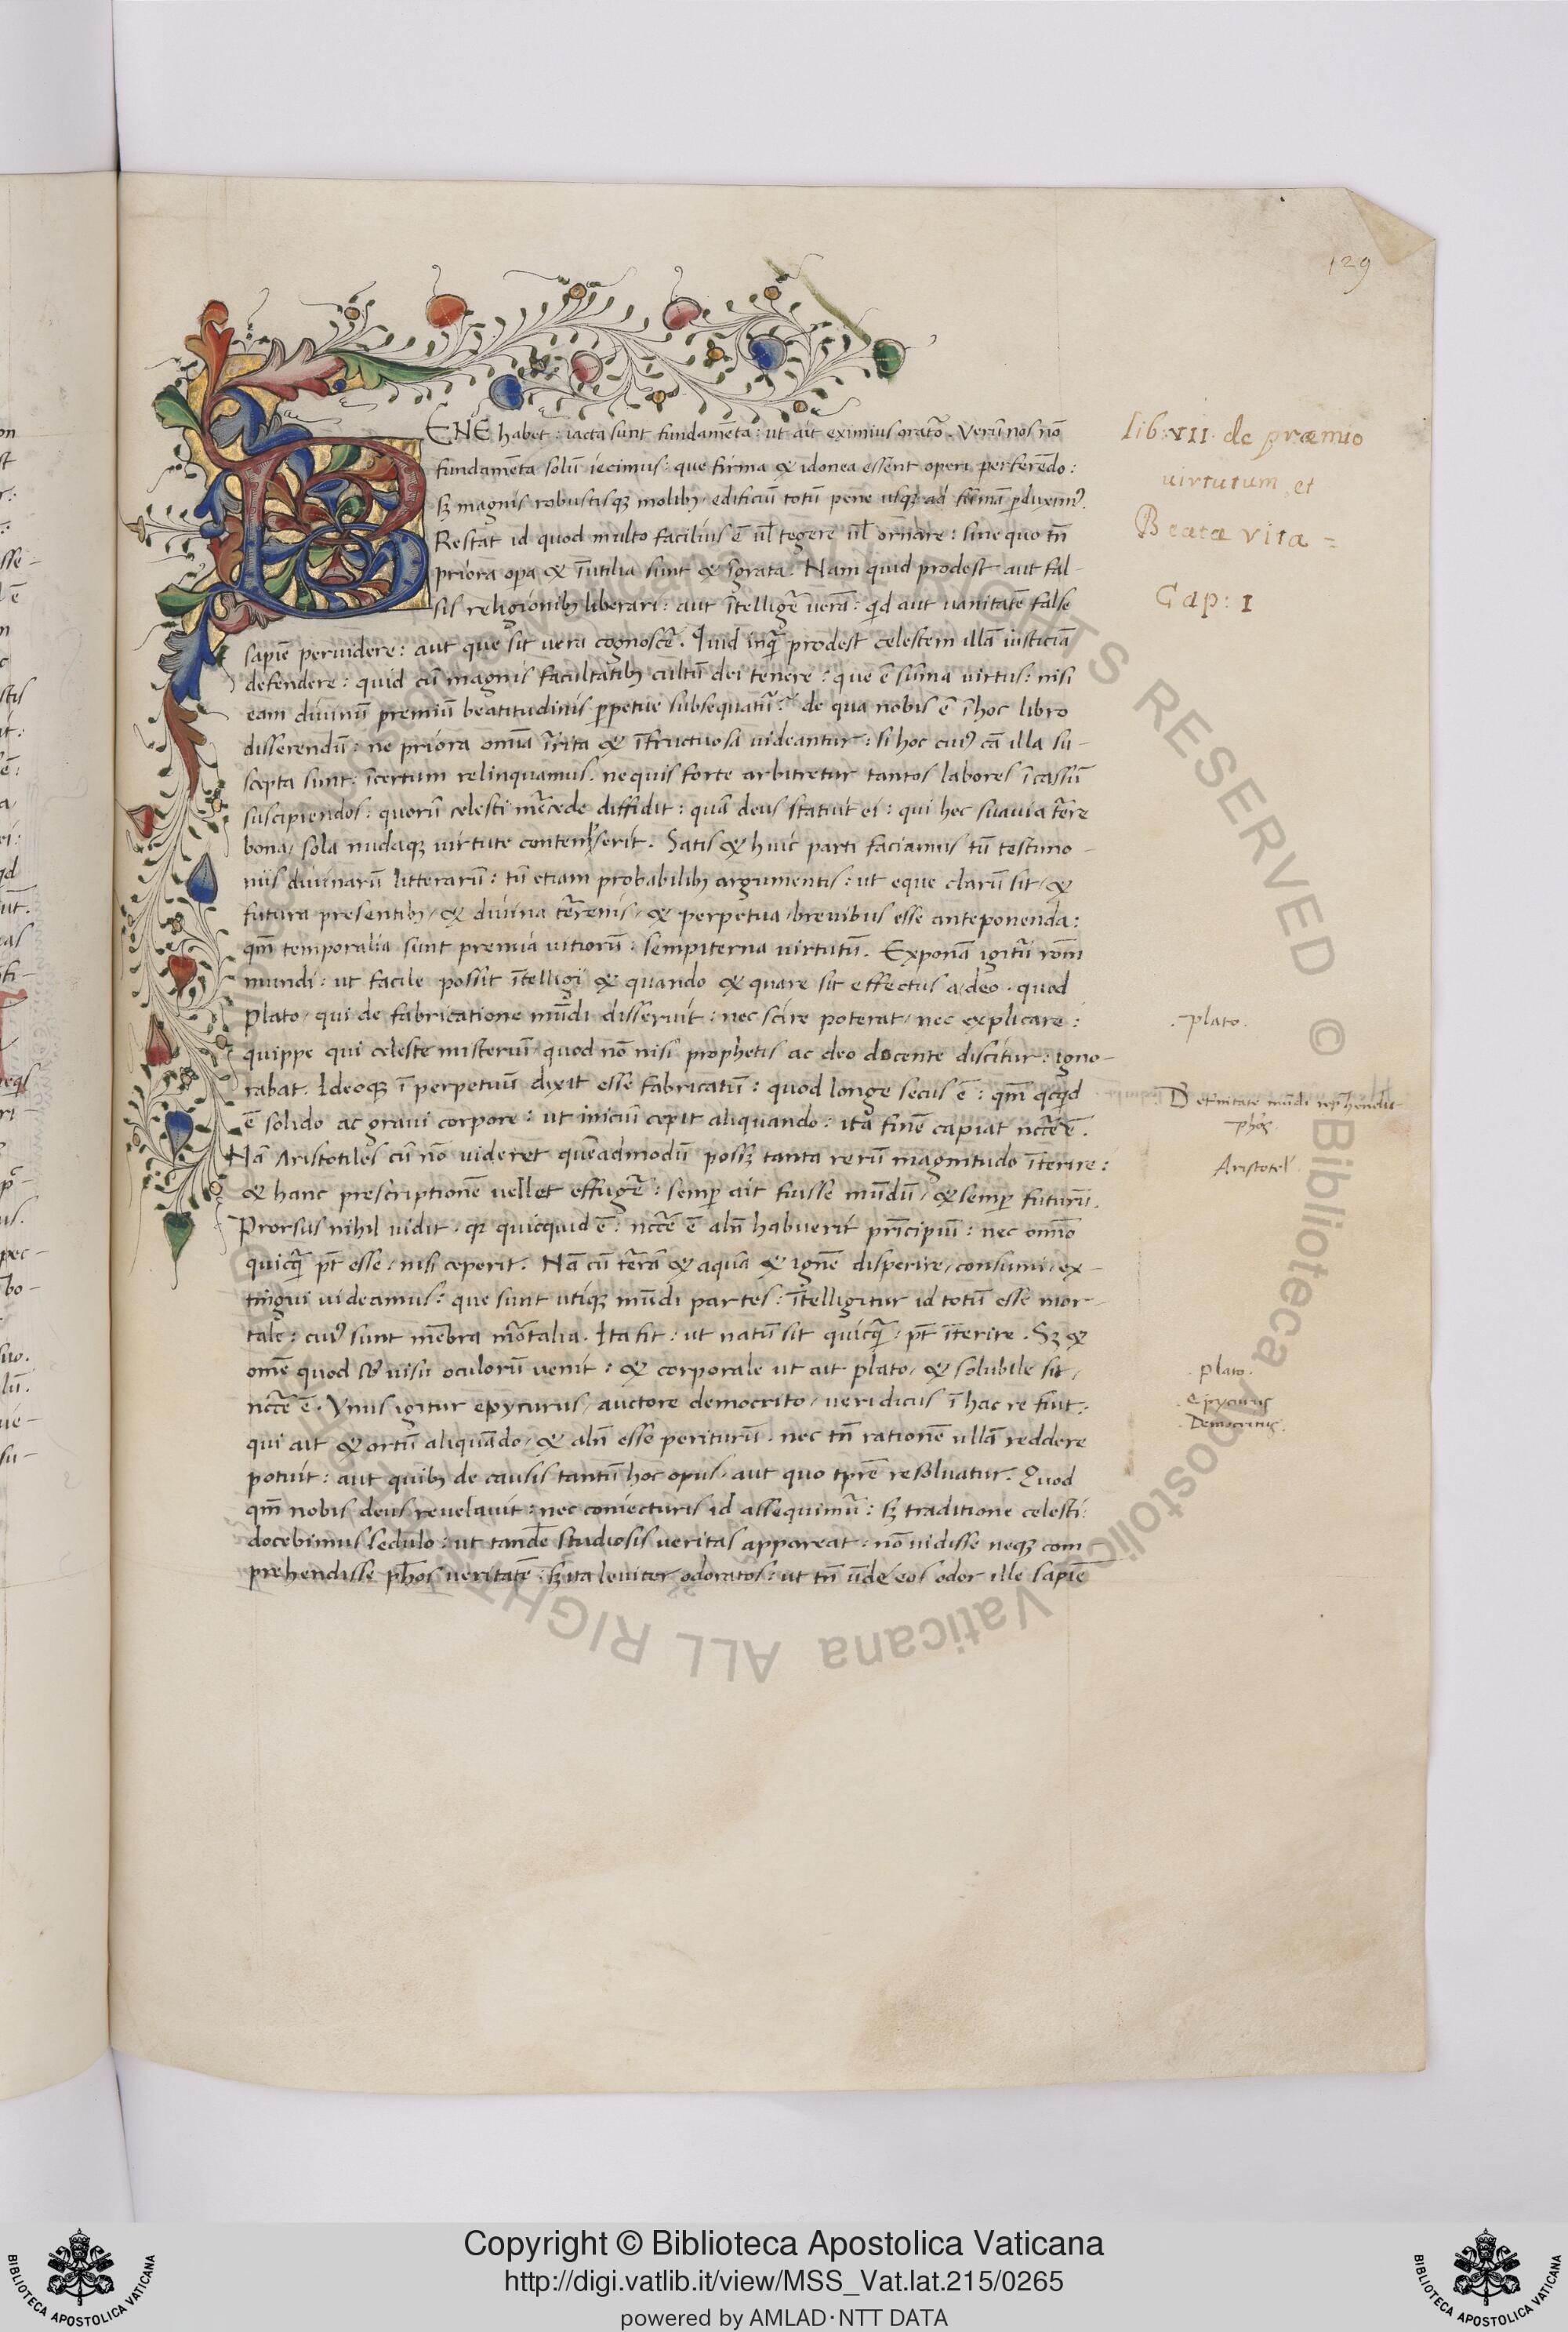 129
BENE habet: iacta sunt fundamēta: ut ait eximius orator̃. Verũ nos nō
fundamēta solũ iecimus: que firma & idonea essent operi perferēdo:
sꝫ magnis robustisqꝫ molibꝫ edificiũ totũ pene usqꝫ ad sũmã ꝑduximꝰ.
Restat id quod multo facilius ē uł tegere uł ornare: sine quo tñ
priora oꝑa & ĩutilia sunt & ĩgrata. Nam quid prodest aut fal-
sis religionibꝫ liberari: aut ĩtelligẽ verã: qd aut uanitatē false
sapiẽ peruidere: aut que sit vera cognoscẽ. Quid inqͣ prodest celestem illã iusticiã
defendere: quid cũ magnis facultatibꝫ cultũ dei tenere: que ē sũma virtus: nisi
eam diuinũ premiũ beatitudinis ꝑpetue subsequatur̃: de qua nobis ē ĩ hoc libro
disserendũ: ne priora omīa ĩrita & ĩfructuosa uideantur: si hoc cuiꝰ cã illa su-
scepta sunt: ĩcertum relinquamus. ne quis forte arbitretur tantos labores ĩcassũ
suscipiendos: quorũ celesti mẽcede diffidit: quã deus statuit ei: qui hec suauia tẽre
bona, sola nudaqꝫ uirtute contempserit. Satis & huic parti faciamus tũ testimo-
niis diuinarũ litterarũ: tũ etiam probabilibꝫ argumentis: ut eque clarũ sit, &
futura presentibꝫ, & diuina tẽrenis, & perpetua breuibus esse anteponenda:
qm̃ temporalia sunt premia uitiorũ: sempiterna uirtutũ. Exponã igitũ rōm
mundi: ut facile possit ĩtelligi & quando & quare sit effectus a deo. quod
Plato, qui de fabricatione mũdi disseruit: nec scire poterat, nec explicare:
quippe qui celeste misteriũ, quod nō nisi prophetis ac deo docente discitur: igno-
rabat. Ideoqꝫ ĩ perpetuũ dixit esse fabricatũ: quod longe secus ē: qm̃ qcqd
ē solido ac graui corpore: ut iniciũ cepit aliquando: ita finē capiat nccẽ ē.
Nã Aristotiles cũ nō uideret quēadmodũ possꝫ tanta rerũ magnitudo ĩterire:
& hanc prescriptionē vellet effugẽ: semꝑ ait fuisse mũdũ, & semꝑ futurũ.
Prorsus nihil uidit. qꝛ quicquid ē: nccẽ ē alñ habuerit prĩcipiũ: nec omĩo
quicqͣ pt̃ esse, nisi ceperit. Nã cũ tẽrã & aquã & ignē disperire, consumi, ex-
tingui uideamus: que sunt utiqꝫ mũdi partes: ĩtelligitur id totũ esse mor-
tale: cuiꝰ sunt mēbra mõtalia. Ita fit: ut natũ sit quicqͣ, pt̃ ĩterire. Sꝫ &
omē quod sub uisũ oculorũ uenit: & corporale ut ait plato, & solubile sit,
nccẽ ē. Vnus igitur epycurus, auctore democrito, ueridicus ĩ hac re fuit:
qui ait & ortũ aliquãdo, & alñ esse periturũ. nec tñ rationē ullã reddere
potuit: aut quibꝫ de causis tantũ hoc opus, aut quo tp̃re resoluatur. Quod
qm̃ nobis deus reuelauit: nec coniecturis id assequimur̃: sꝫ traditione celesti:
docebimus sedulo: ut tandē studiosis ueritas appareat: nō uidisse neqꝫ com
prehendisse phõs ueritatē: sꝫ ita leuiter odoratos: ut tñ ũde eos odor ille sapiẽ
lib: VII. de præmio
uirtutum et
Beata vita =
Cap: 1
.plato.
Aristotel'
plato.
Epycurus
Democritus.
Copyright © Biblioteca Apostolica Vaticana
http://digi.vatlib.it/view/MSS_Vat.lat.215/0265
powered by AMLAD·NTT DATA
BIBLIOTECA APOSTOLICA VATICANA
BIBLIOTECA APOSTOLICA VATICANA